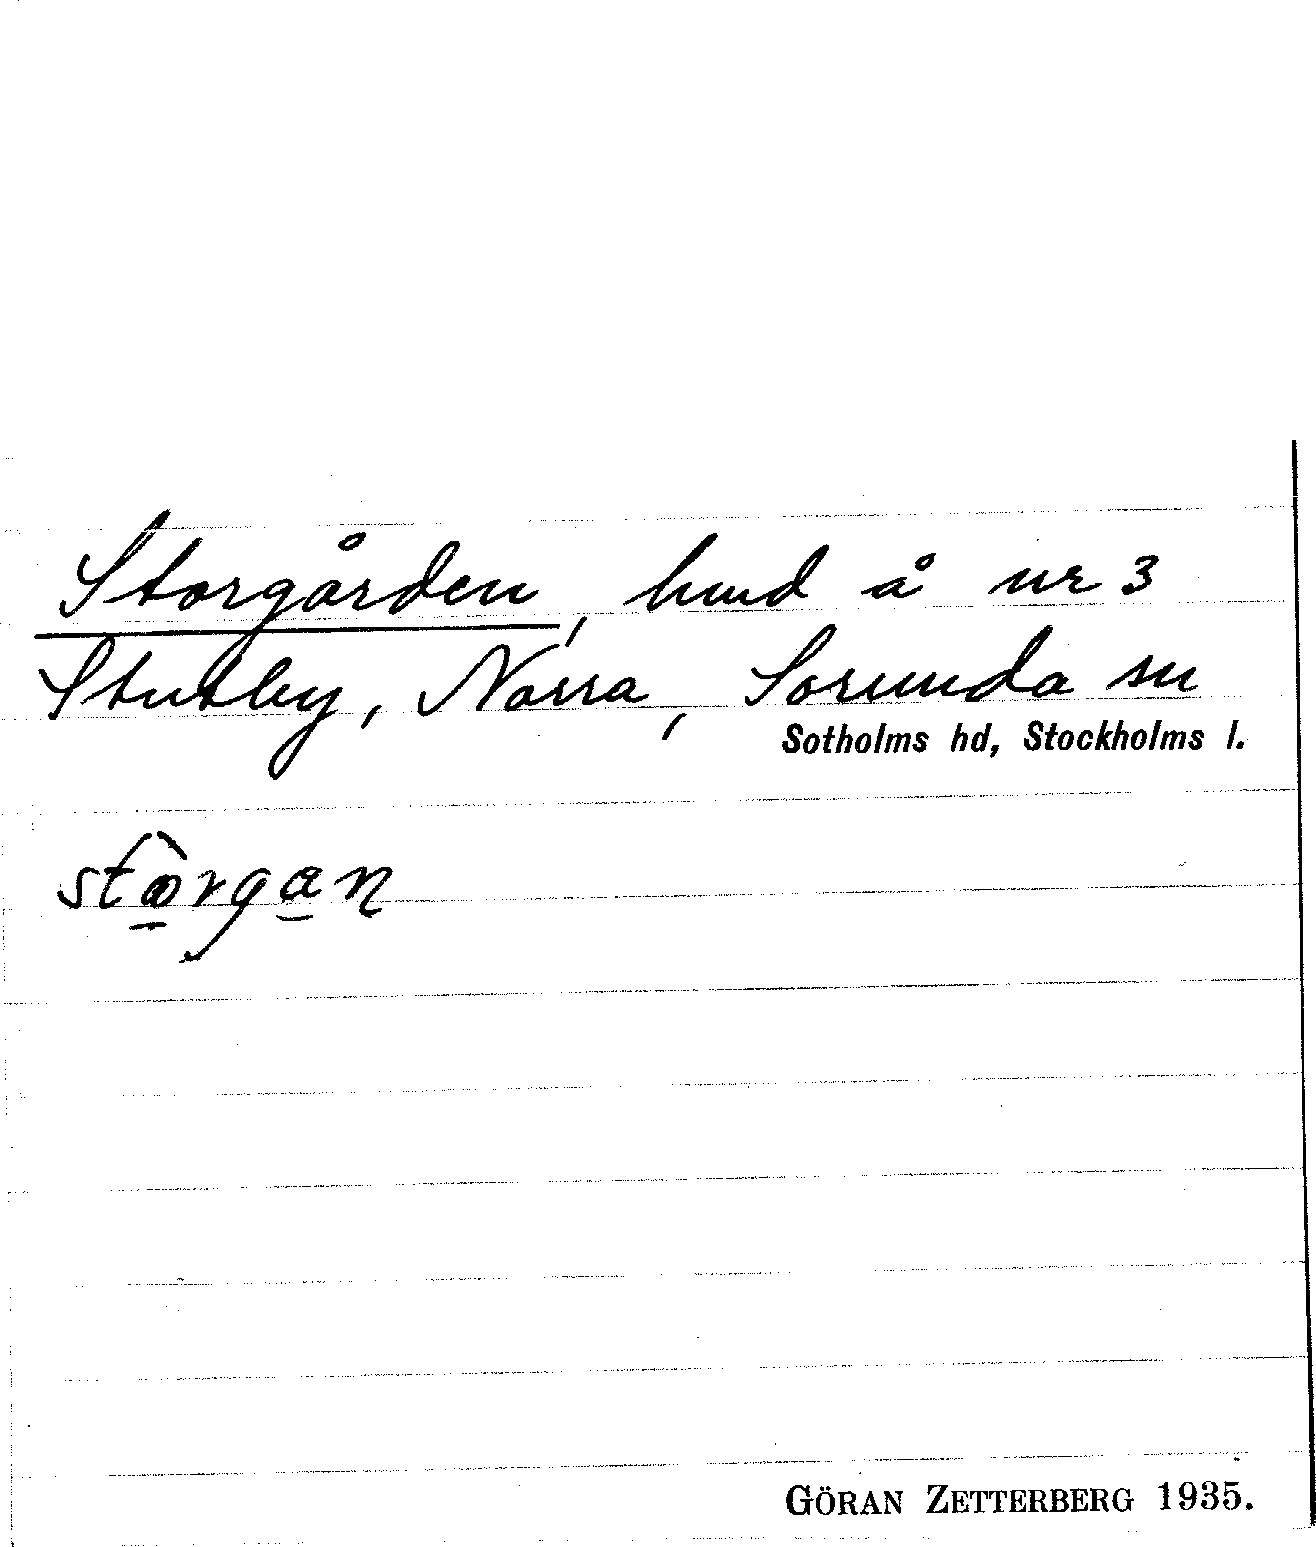 Storgården, hmd å nr 3
Stutby, Norra, Sorunda sn
Sotholms hd, Stockholms l.
GÖRAN ZETTERBERG 1935.